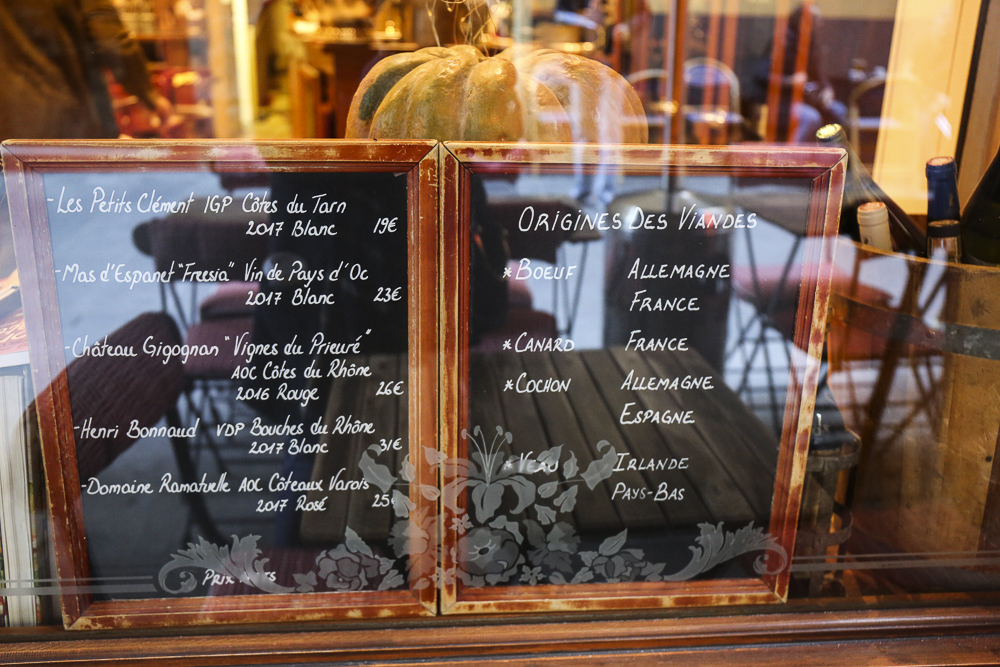 -Les Petits Clément IGP Côtes du Tarn
2017 Blanc 19€
-Mas d'Espanet "Freesia" Vin de Pays d'Oc
2017 Blanc 23€
-Château Gigognan "Vignes du Prieuré"
AOC Côtes du Rhône
2016 Rouge 26€
-Henri Bonnaud VDP Bouches du Rhône
2017 Blanc 31€
-Domaine Ramatuelle AOC Côteaux Varois
2017 Rosé 25€
Prix nets
Origines Des Viandes
*Boeuf Allemagne
France
*Canard France
*Cochon Allemagne
Espagne
*Veau Irlande
Pays-Bas